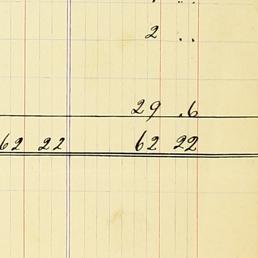 2 ..
29 .6
62 22 62 22